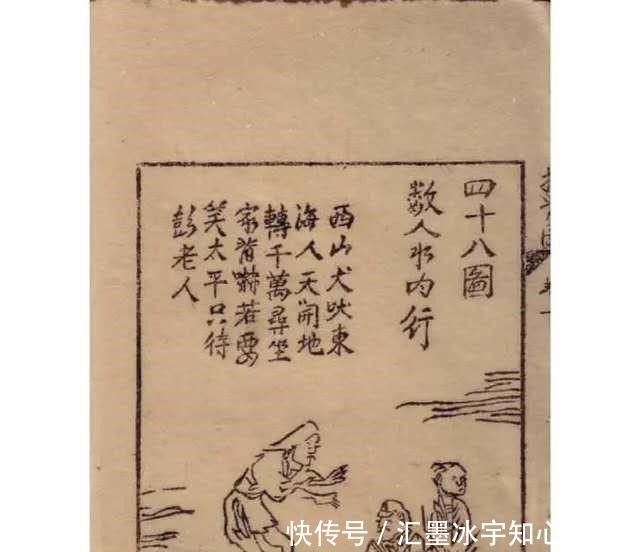 四十八圖
数人水内行
西山犬吠東
海人天開地
轉千萬尋坐
家皆嚇若要
笑太平只待
彭老人
快传号 / 汇墨冰宇知心